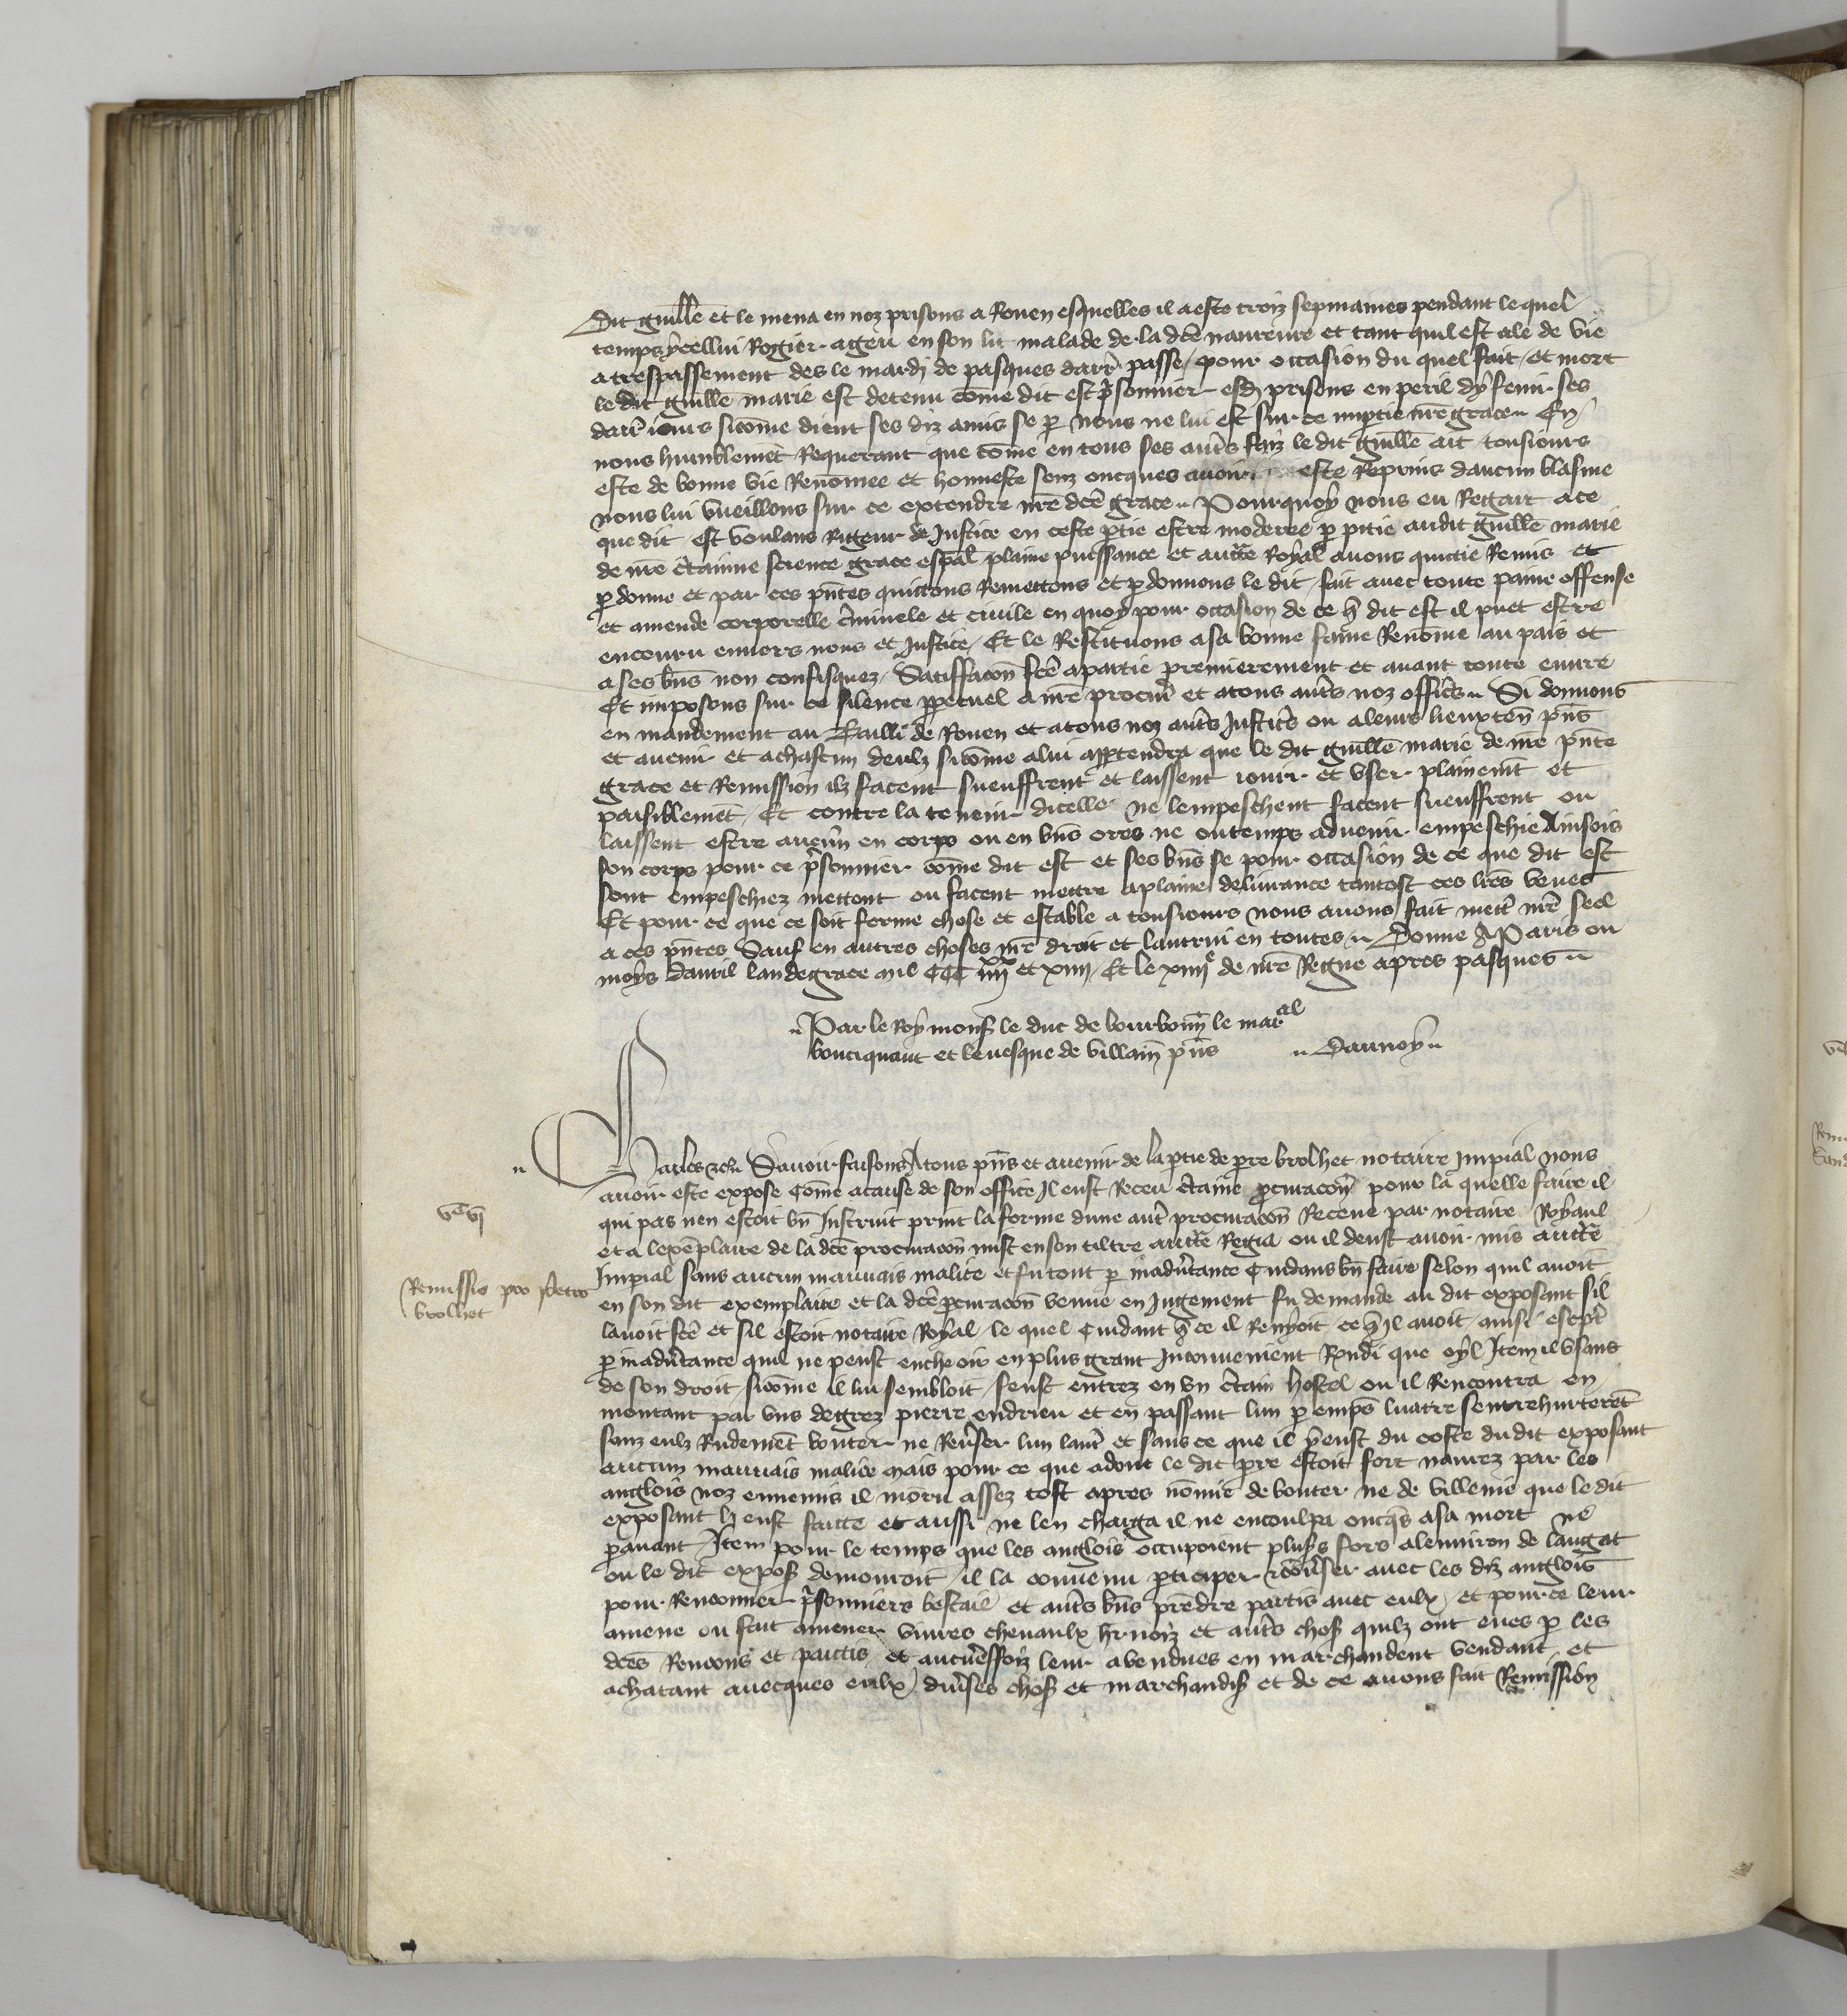 Dit guille et le mena en noz prisons a Rouen esquelles il a este troiz sepmaines pendant le quel
temps ycellui Rogier a geu en son lit malade de la dce navreure et tant quil est ale de vie
a trespassement des le mardj de pasques darr passe / pour occasion du quel fait / et mort
le dit guille marie est detenu cōme dit est psonnier esdz prisons en peril dy fenir ses
darr iours sicōme dient ses diz amis se p nous ne lui est sur ce impartie nre grace En
nous humblemēt Requerant que cōme en tous ses aut̃s faiz le dit guille ait tousiours
este de bonne vie Renōmee et honneste senz oncques avoir este Reprins daucun blasme
nous lui vueillons sur ce extendre nre dce grace Pourquoy nous eu Regart a ce
que dit est voulans Rigeur de Justice en ceste ptie estre moderee p pitie audit guille marie
de nre ctainne science grace espal plaine puissance et auctte Royal avons quictie Remis et
pdonne et par ces pntes quittons Remettons et pdonnons le dit fait avec toute paine offense
et amende corporelle cminele et civile en quoy pour occasion de ce q dit est il puet estre
encouru envers nous et Justice / Et le Restituons a sa bonne fame Renōme au pais et
a ses bns non confisquez / Satiffacon fce a partie premierement et avant toute euvre
Et imposons sur ce silence ppetuel a nre procur et a tous aut̃s noz offics Si donnons
en mandement au Bailli de Rouen et a tous noz aut̃s Justics ou a leurs lieuxten pns
et avenir et a chascun deulz sicōme a lui apptendra que le dit guille marie de nre pnte
grace et Remission ilz facent sueuffrent et laissent iouir et user plainemt et
paisiblemēt / Et contre la teneur dicelle ne lempeschent facent sueuffrent ou
laissent estre aucun en corps ou en bns ores ne ou temps advenir empeschie Ainsois
son corps pour ce psonnier cōme dit est et ses bns se pour occasion de ce que dit est
sont empeschiez mettent ou facent mettre a plaine delivrance tantost ces lres veues
Et pour ce que ce soit ferme chose et estable a tousiours nous avons fait mett nre seel
a ces pntes Sauf en autres choses nre droit et lautrui en toutes Donne A Paris ou
moys davril lan de grace mil CCC iiii xx et xiiii / Et le xiiii e de nre Regne apres pasques
Par le Roy monss le duc de bourbonn le mar al
bouciquaut et levesque de [...] pns Daunoy
Charles etc Savoir faisons A tous pns et avenir de la ptie de pre brolhet notaire Impial nous
avoir este expose Cōme a cause de son office Il eust Receu ctaine pcuracon pour la quelle faire il
qui pas nen estoit bn Instruit prinst la forme dune aut procuracon Receue par notaire Royaul
et a lexēplaire de la dce procuracon mist en son tiltre auctte Regia ou il deust avoir mis auctte
Impial sans aucun mauvais malice et fu tout p inadvtance Cuidans bn faire selon quil avoit
en son dit exemplaire et la dce pcuracon venue en Jugement fu demande au dit exposant sil
lavoit fce et sil estoit notaire Royal / le quel Cuidant q se il Renyoit ce ql avoit ainsi escpt
p inadvtance quil ne peust encheoir en plus grant Inconvenient Rondi que oyl Item il usans
de son droit sicōme il lui sembloit / feust entrez en un ctain hostel ou il Rencontra en
montant par uns degrez pierre endrieu et en passant lun p empres lautre sentrehurterēt
sanz eulz Rudemēt bouter ne Revser lun laut et sans ce que il y eust du coste du dit exposant
aucun mauvais malice Mais pour ce que adont le dit pre estoit fort navrez par les
anglois noz ennemis il moru assez tost apres nōmie de bouter ne de villenie que le dit
exposant li eust faicte et aussi ne len charga il ne encoulpa oncqs a sa mort ne
pavant / Item pour le temps que les anglois occupoient pluss fors a lenviron de laugat
ou le dit expos demouroit / il la convenu pticiper et convser avec les diz anglois
pour Renconner psonniers bestail et aut̃s bns prēdre partis avec eulx / et pour ce leur
amene ou fait amener vivres chevaulx hrnoiz et aut̃s chos quilz ont eues p les
dces Roncons et pactis / et aucunesfoiz leur a vendues en marchandent vendant et
achatant avecques eulx divses chos et marchandis et de ce avons fait Remission
v c vj
Remissio pro petro
brolhet